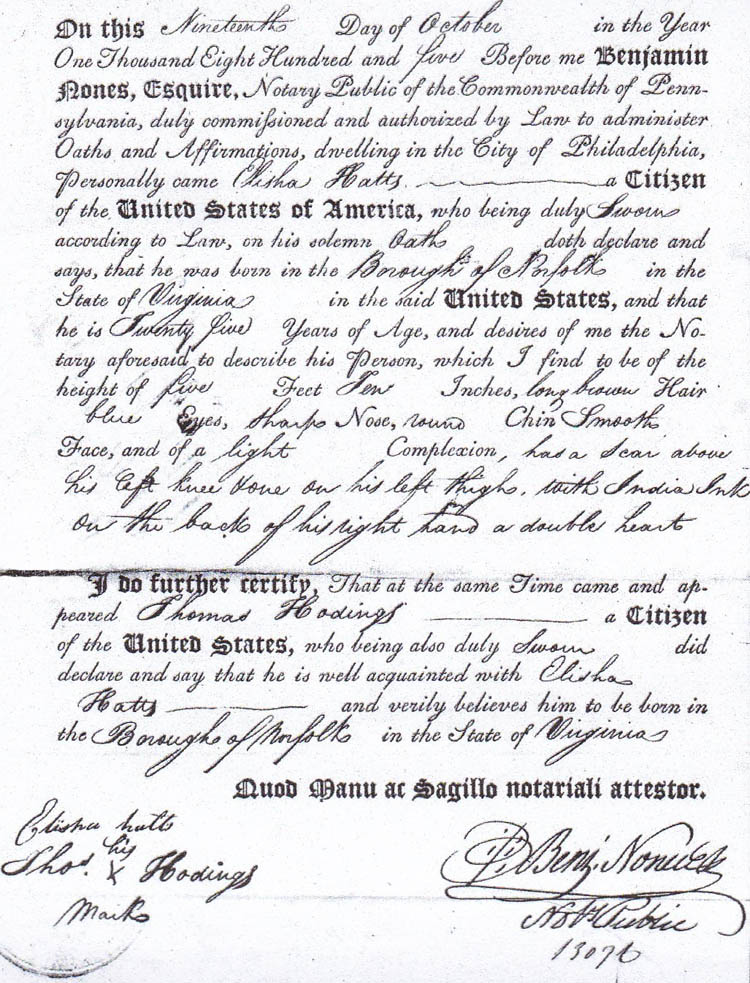 On this Nineteenth Day of October in the Year
One Thousand Eight Hundred and five Before me Benjamin
Nones, Esquire, Notary Public of the Commonwealth of Penn-
sylvania, duly commissioned and authorized by Law to administer
Oaths and Affirmations, dwelling in the City of Philadelphia,
Personally came Elisha Hatts a Citizen
of the United States of America, who being duly Sworn
according to Law, on his solemn Oath doth declare and
says, that he was born in the Borough of Norfolk in the
State of Virginia in the said United States, and that
he is Twenty five Years of Age, and desires of me the No-
tary aforesaid to describe his Person, which I find to be of the
height of five Feet Ten Inches, long brown Hair
blue Eyes, sharp Nose, round Chin Smooth
Face, and of a light Complexion, has a Scar above
his left knee done on his left thigh, with India Ink
on the back of his right hand a double heart
I do further certify, That at the same Time came and ap-
peared Thomas Hodings a Citizen
of the United States, who being also duly Sworn did
declare and say that he is well acquainted with Elisha
Hatts and verily believes him to be born in
the Borough of Norfolk in the State of Virginia
Quod Manu ac Sagillo notariali attestor.
Elisha hatts
his
Thos. X Hodings
Mark
Benj. Nones
Noty Public